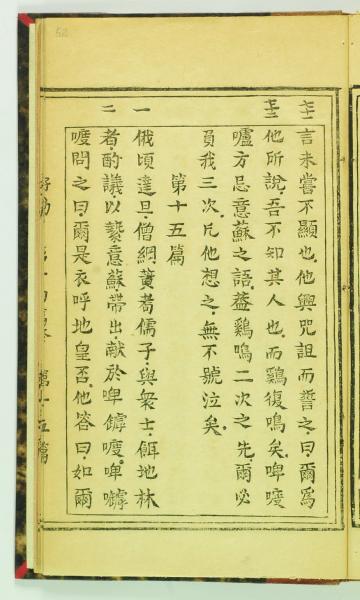 七十一 言未嘗不顯也他興咒詛而誓之曰爾為
七十二 他所說吾不知其人也而鷄復鳴矣啤嚘
嚧方忌意蘇之語蓋鷄鳴二次之先爾必
負我三次凡他想之無不號泣矣
第十五篇
一 俄頃達旦僧綱耆儒子與衆士餌地林
二 者酌議以縶意蘇帶出献於啤嚘啤
嚘問之曰爾是衣呼地皇否他答曰如爾
第十五篇